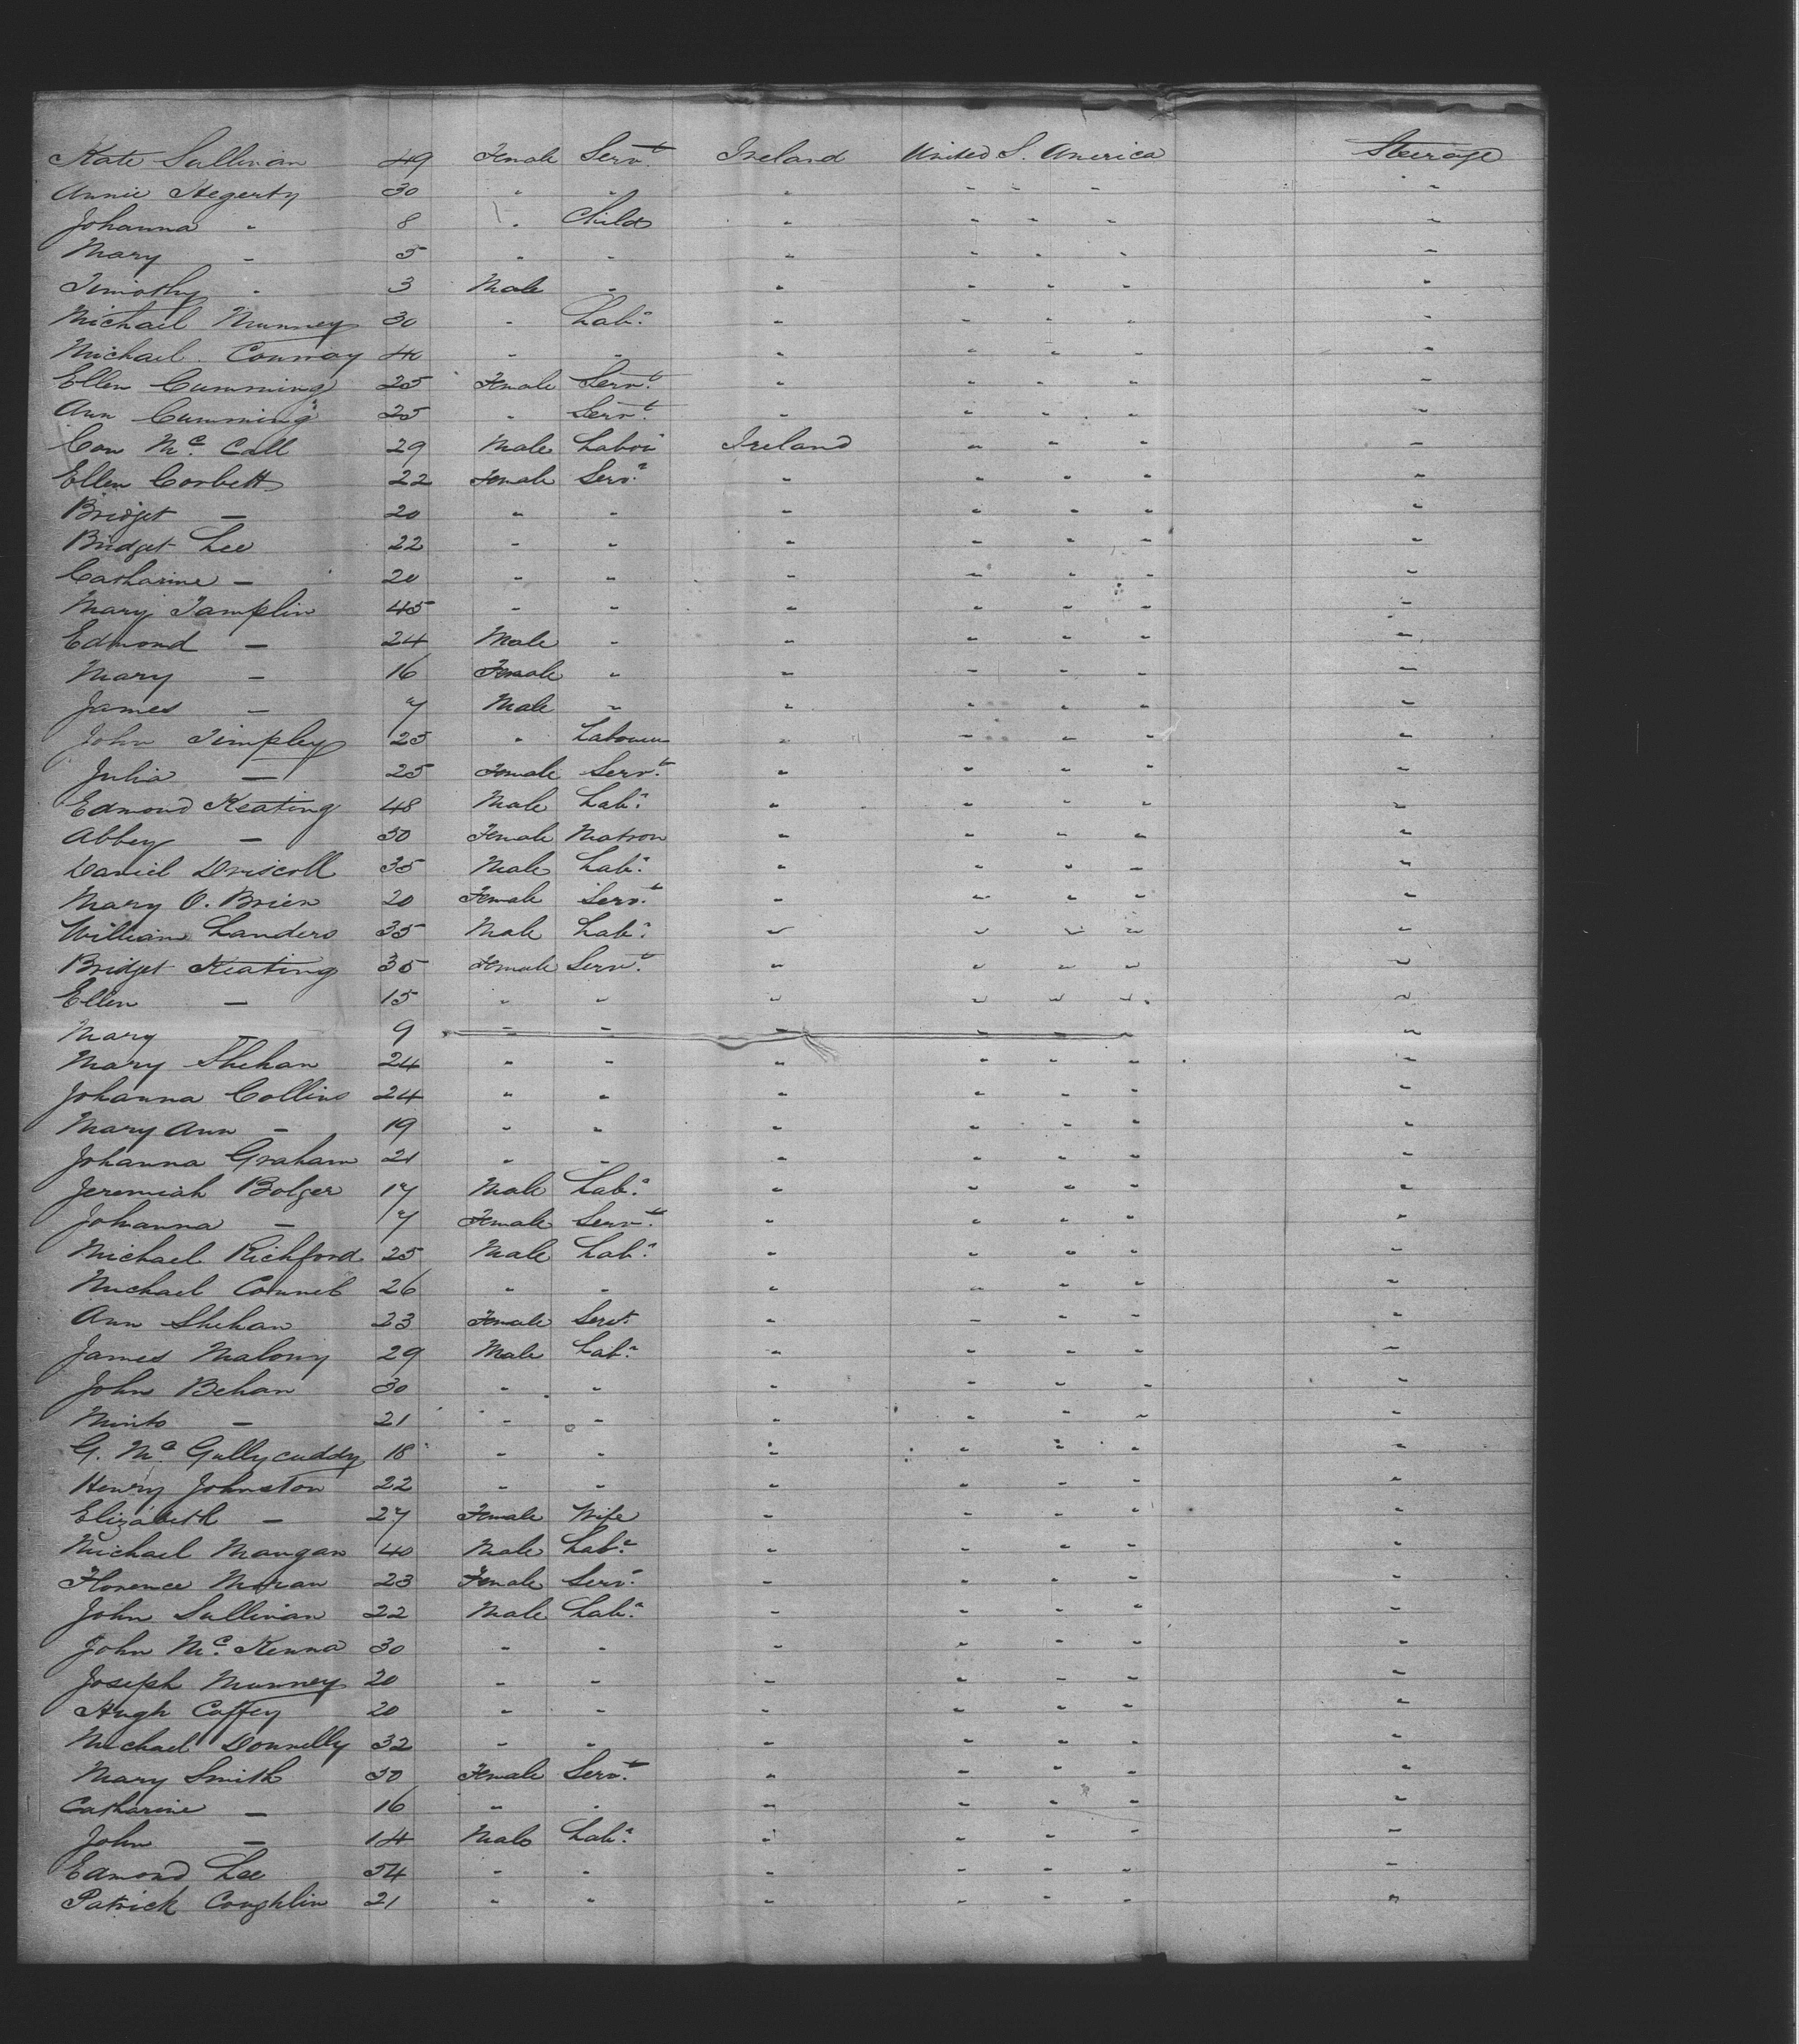 Kate Sullivan 49 Female Servt. Ireland United S. America Steerage
Annie Hegerty 30 " " " " " " "
Johanna " 8 " Child " " " " "
Mary " 5 " " " " " " "
Timothy " 3 Male " " " " " "
Michael Munney 30 " Labr. " " " " "
Michael Conway 40 " " " " " " "
Ellen Cumming 25 Female Servt. " " " " "
Ann Cumming 25 " Servt. " " " " "
Con Mc. Call 29 Male Labor Ireland " " " "
Ellen Corbett 22 Female Serv. " " " " "
Bridget — 20 " " " " " " "
Bridget Lee 22 " " " " " " "
Catharine — 20 " " " " " " "
Mary Tamplin 45 " " " " " " "
Edmond — 24 Male " " " " " "
Mary — 16 Female " " " " " "
James — 7 Male " " " " " "
John Timpley 25 " Labourer " " " " "
Julia — 25 Female Servt. " " " " "
Edmond Keating 48 Male Labr. " " " " "
Abbey — 50 Female Matron " " " " "
Daniel Driscoll 35 Male Labr. " " " " "
Mary O. Brien 20 Female Servt. " " " " "
William Landers 35 Male Labr. " " " " "
Bridget Keating 35 Female Servt. " " " " "
Ellen — 15 " " " " " " "
Mary — 9 " " " " " " "
Mary Shehan 24 " " " " " " "
Johanna Collins 24 " " " " " " "
Mary Ann — 19 " " " " " " "
Johanna Graham 21 " " " " " " "
Jeremiah Bolger 17 Male Labr. " " " " "
Johanna — 7 Female Servt. " " " " "
Michael Richford 25 Male Labr. " " " " "
Michael 26 " " " " " " "
Ann Shehan 23 Female Servt. " " " " "
James Malony 29 Male Labr. " " " " "
John Behan 30 " " " " " " "
— 21 " " " " " " "
G. Mc. Gullycuddy 18 " " " " " " "
Henry Johnston 22 " " " " " " "
Elizabeth — 27 Female Wife " " " " "
Michael Mangan 40 Male Labr. " " " " "
Florence Moran 23 Female Serv. " " " " "
John Sullivan 22 Male Labr. " " " " "
John Mc. Kenna 30 " " " " " " "
Joseph Munney 20 " " " " " " "
Hugh Coffey 20 " " " " " " "
Michael Donnelly 32 " " " " " " "
Mary Smith 50 Female Servt. " " " " "
Catharine — 16 " " " " " " "
John — 14 Male Labr. " " " " "
Edmond Lee 54 " " " " " " "
Patrick Coughlin 21 " " " " " " "